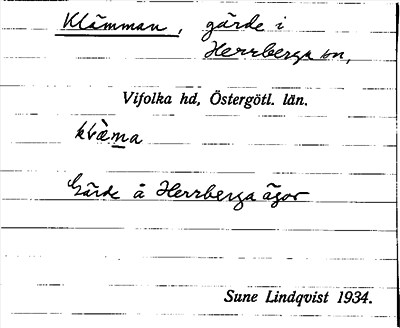 Klämman, gärde i
Herrberga sn,
Vifolka hd, Östergötl. län.
klèma
Gärde å Herrberga ägor
Sune Lindqvist 1934.